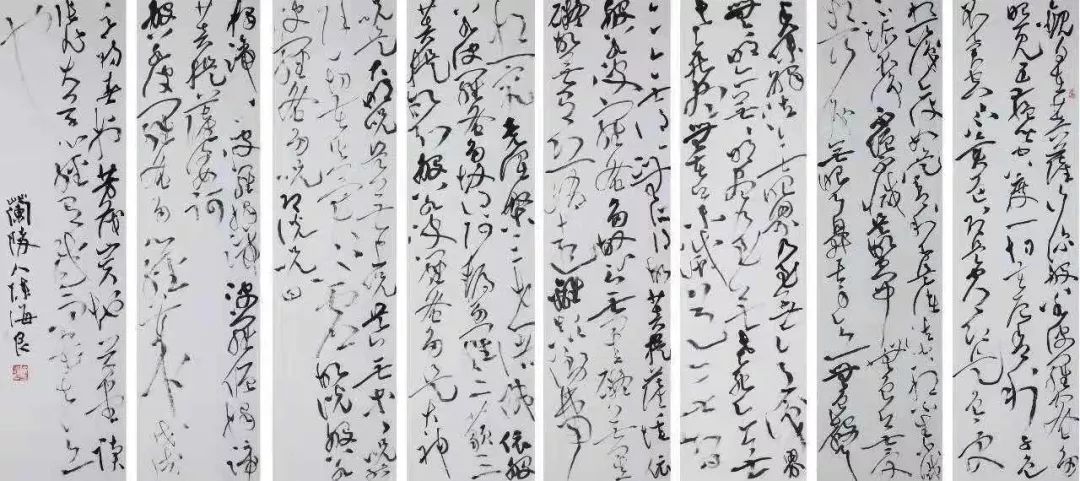 觀自在菩薩行深般若波羅蜜多時
照見五蘊皆空度一切苦厄舍利子色
不異空空不異色色即是空空即是色受
想行識亦復如是舍利子是諸法空相不生不滅
不垢不淨不增不減是故空中無色無受
想行識無眼耳鼻舌身意無色聲
香味觸法無眼界乃至無意識界
無無明亦無無明盡乃至無老死亦無
老死盡無苦集滅道無智亦無得
以無所得故菩提薩埵依
般若波羅蜜多故心無罣礙無罣
礙故無有恐怖遠離顛倒夢
想究竟涅槃三世諸佛依般
若波羅蜜多故得阿耨多羅三藐三
菩提故知般若波羅蜜多是大神
咒是大明咒是無上咒是無等等咒能
除一切苦真實不虛故說般若
波羅蜜多咒即說咒曰
揭諦揭諦波羅揭諦波羅僧揭諦
菩提薩婆訶
般若波羅蜜多心經
戊戌
蘭陵人陳海良